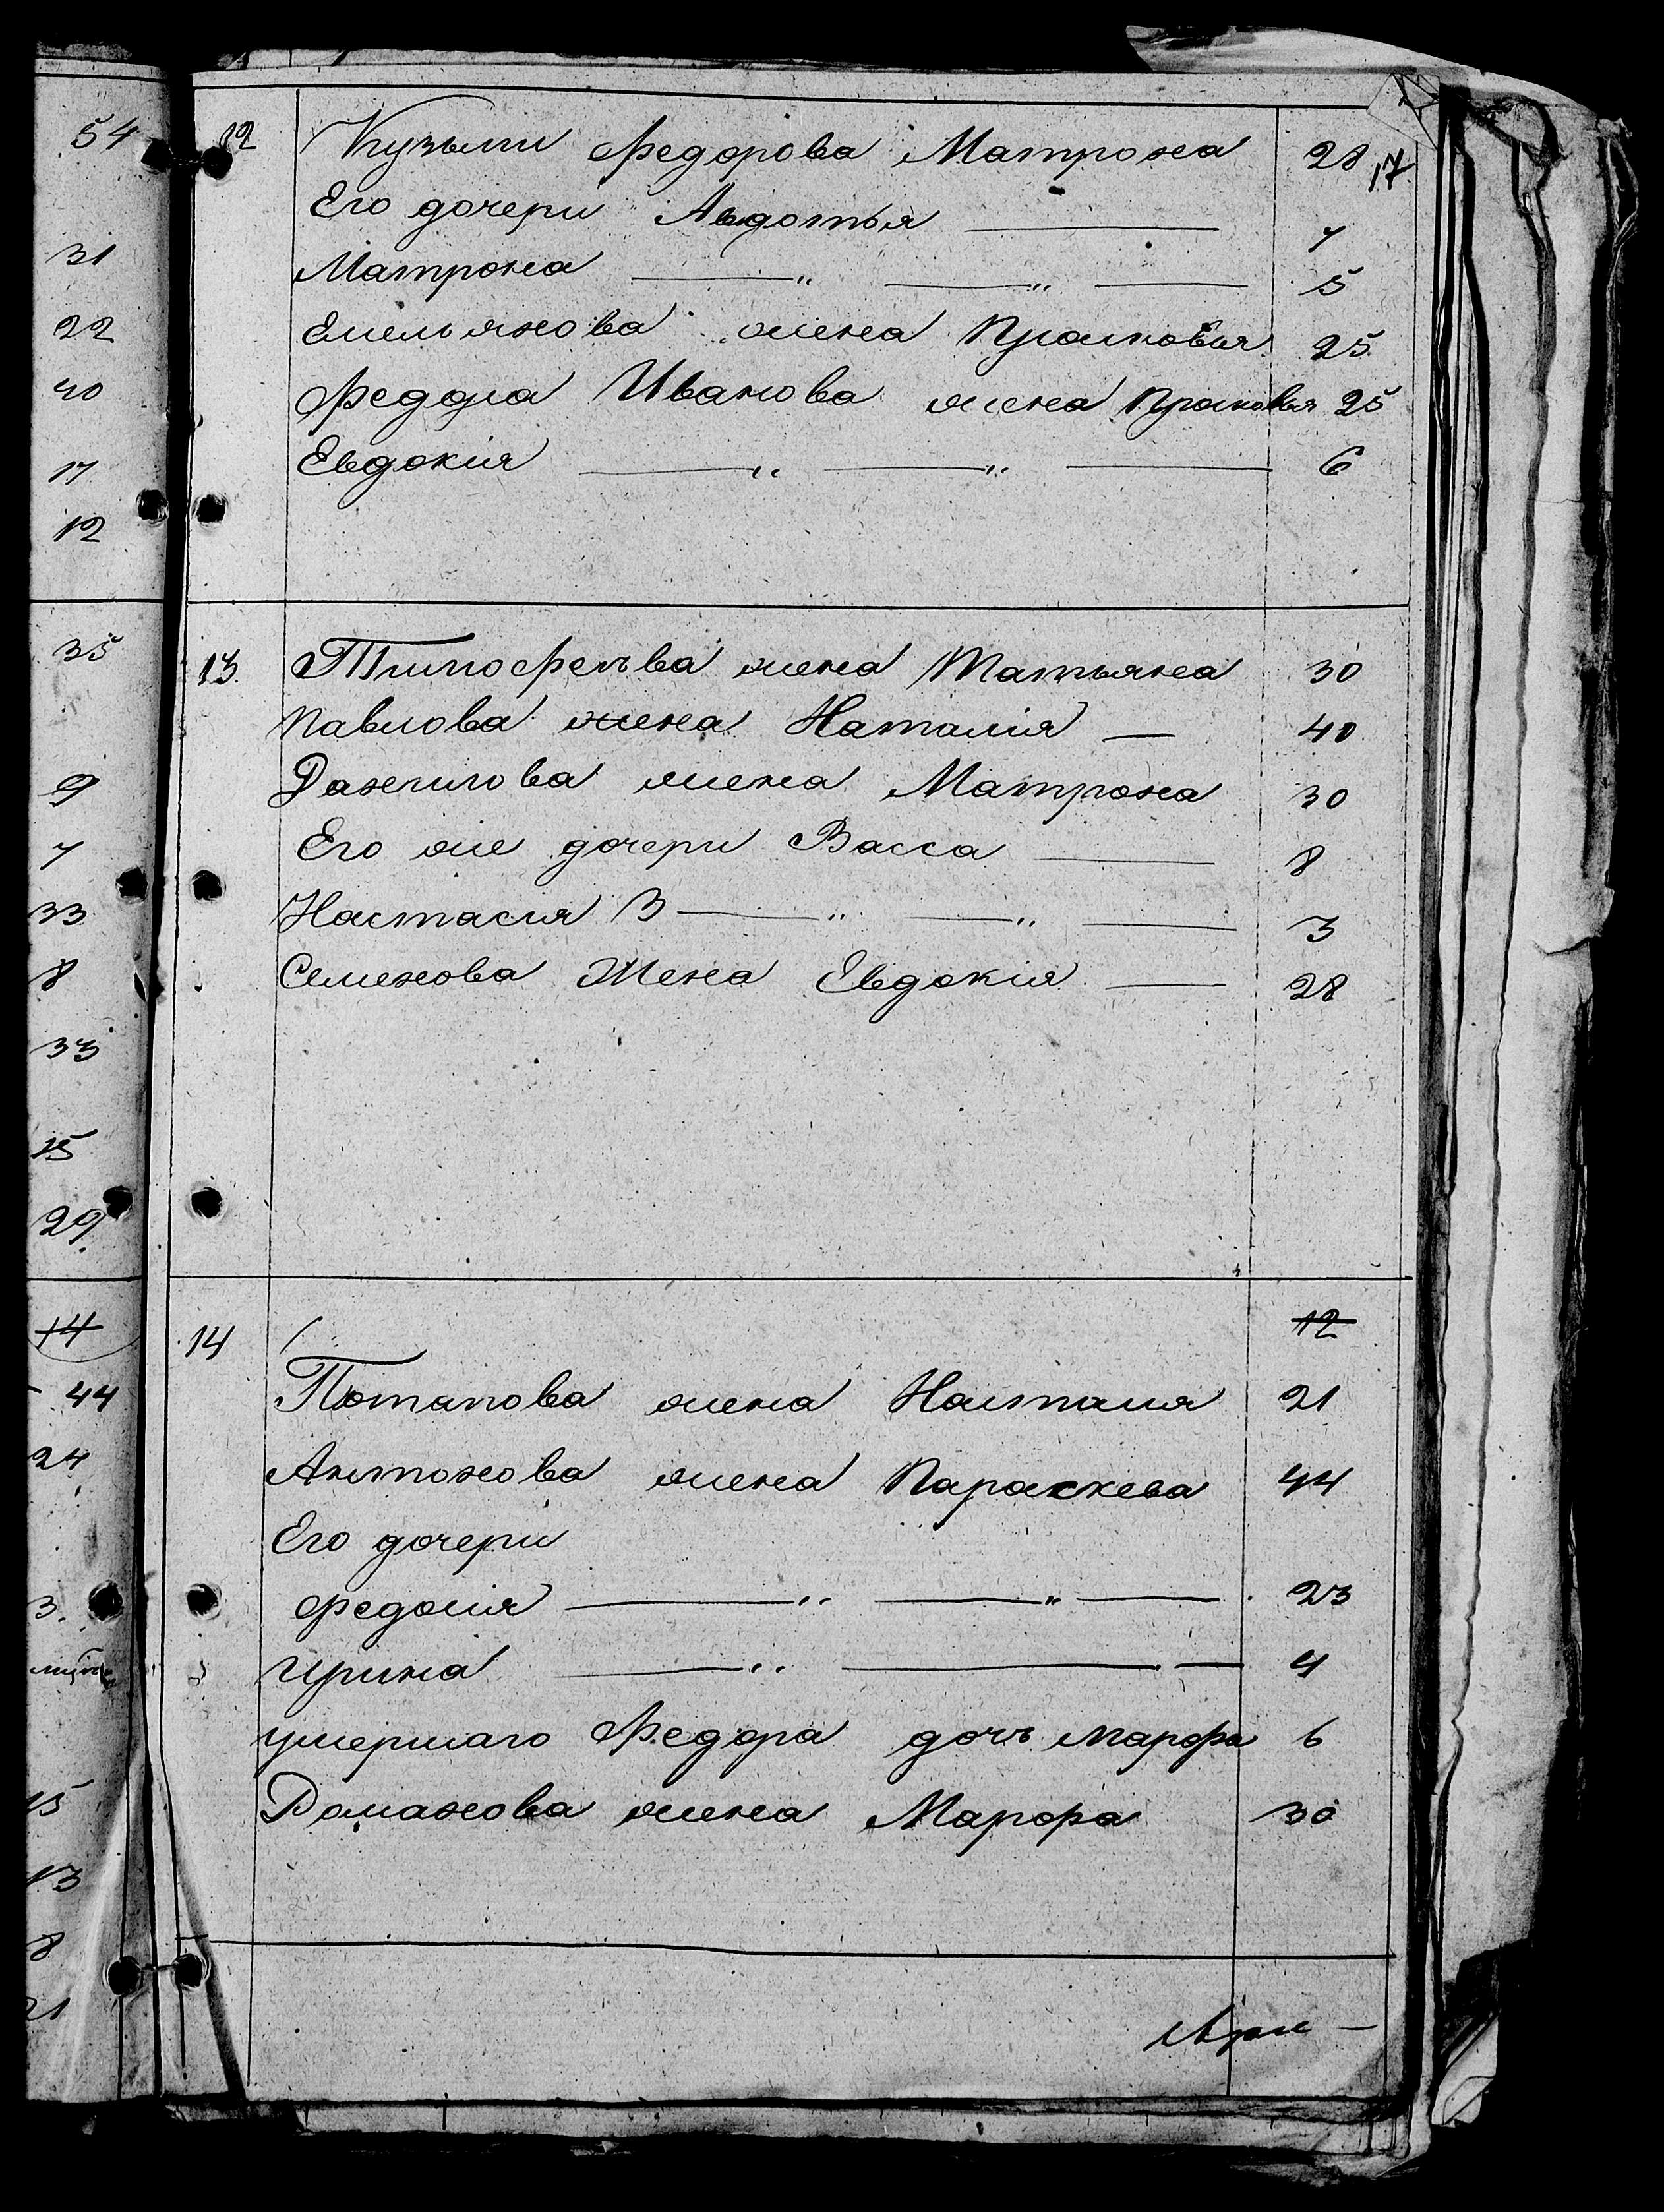 54
31
22
40
17
12
35
9
7
33
8
33
15
29
14
44
24
3.
15
13
8
21
17
12 Кузьмы Федорова Матрона 28
Его дочери Авдотья — 7
Матрона — „ — „ — 5
Емельянова жена Прасковья 25
Федора Иванова жена Прасковья 25
Евдокія — „ — „ — 6
13 Тимофеева жена Татьяна 30
Павлова жена Наталія — 40
Данилова жена Матрона 30
Его же дочери Васса — 8
Настасия 3 — „ — „ — 3
Семенова Жена Евдокія — 28
12
14
Потапова жена Настасия 21
Антонова жена Параскева 44
Его дочери
Федосия — „ — „ — 23
Ирина — „ — — 4
умершаго Федора дочь Марфа 6
Романова жена Марфа 30